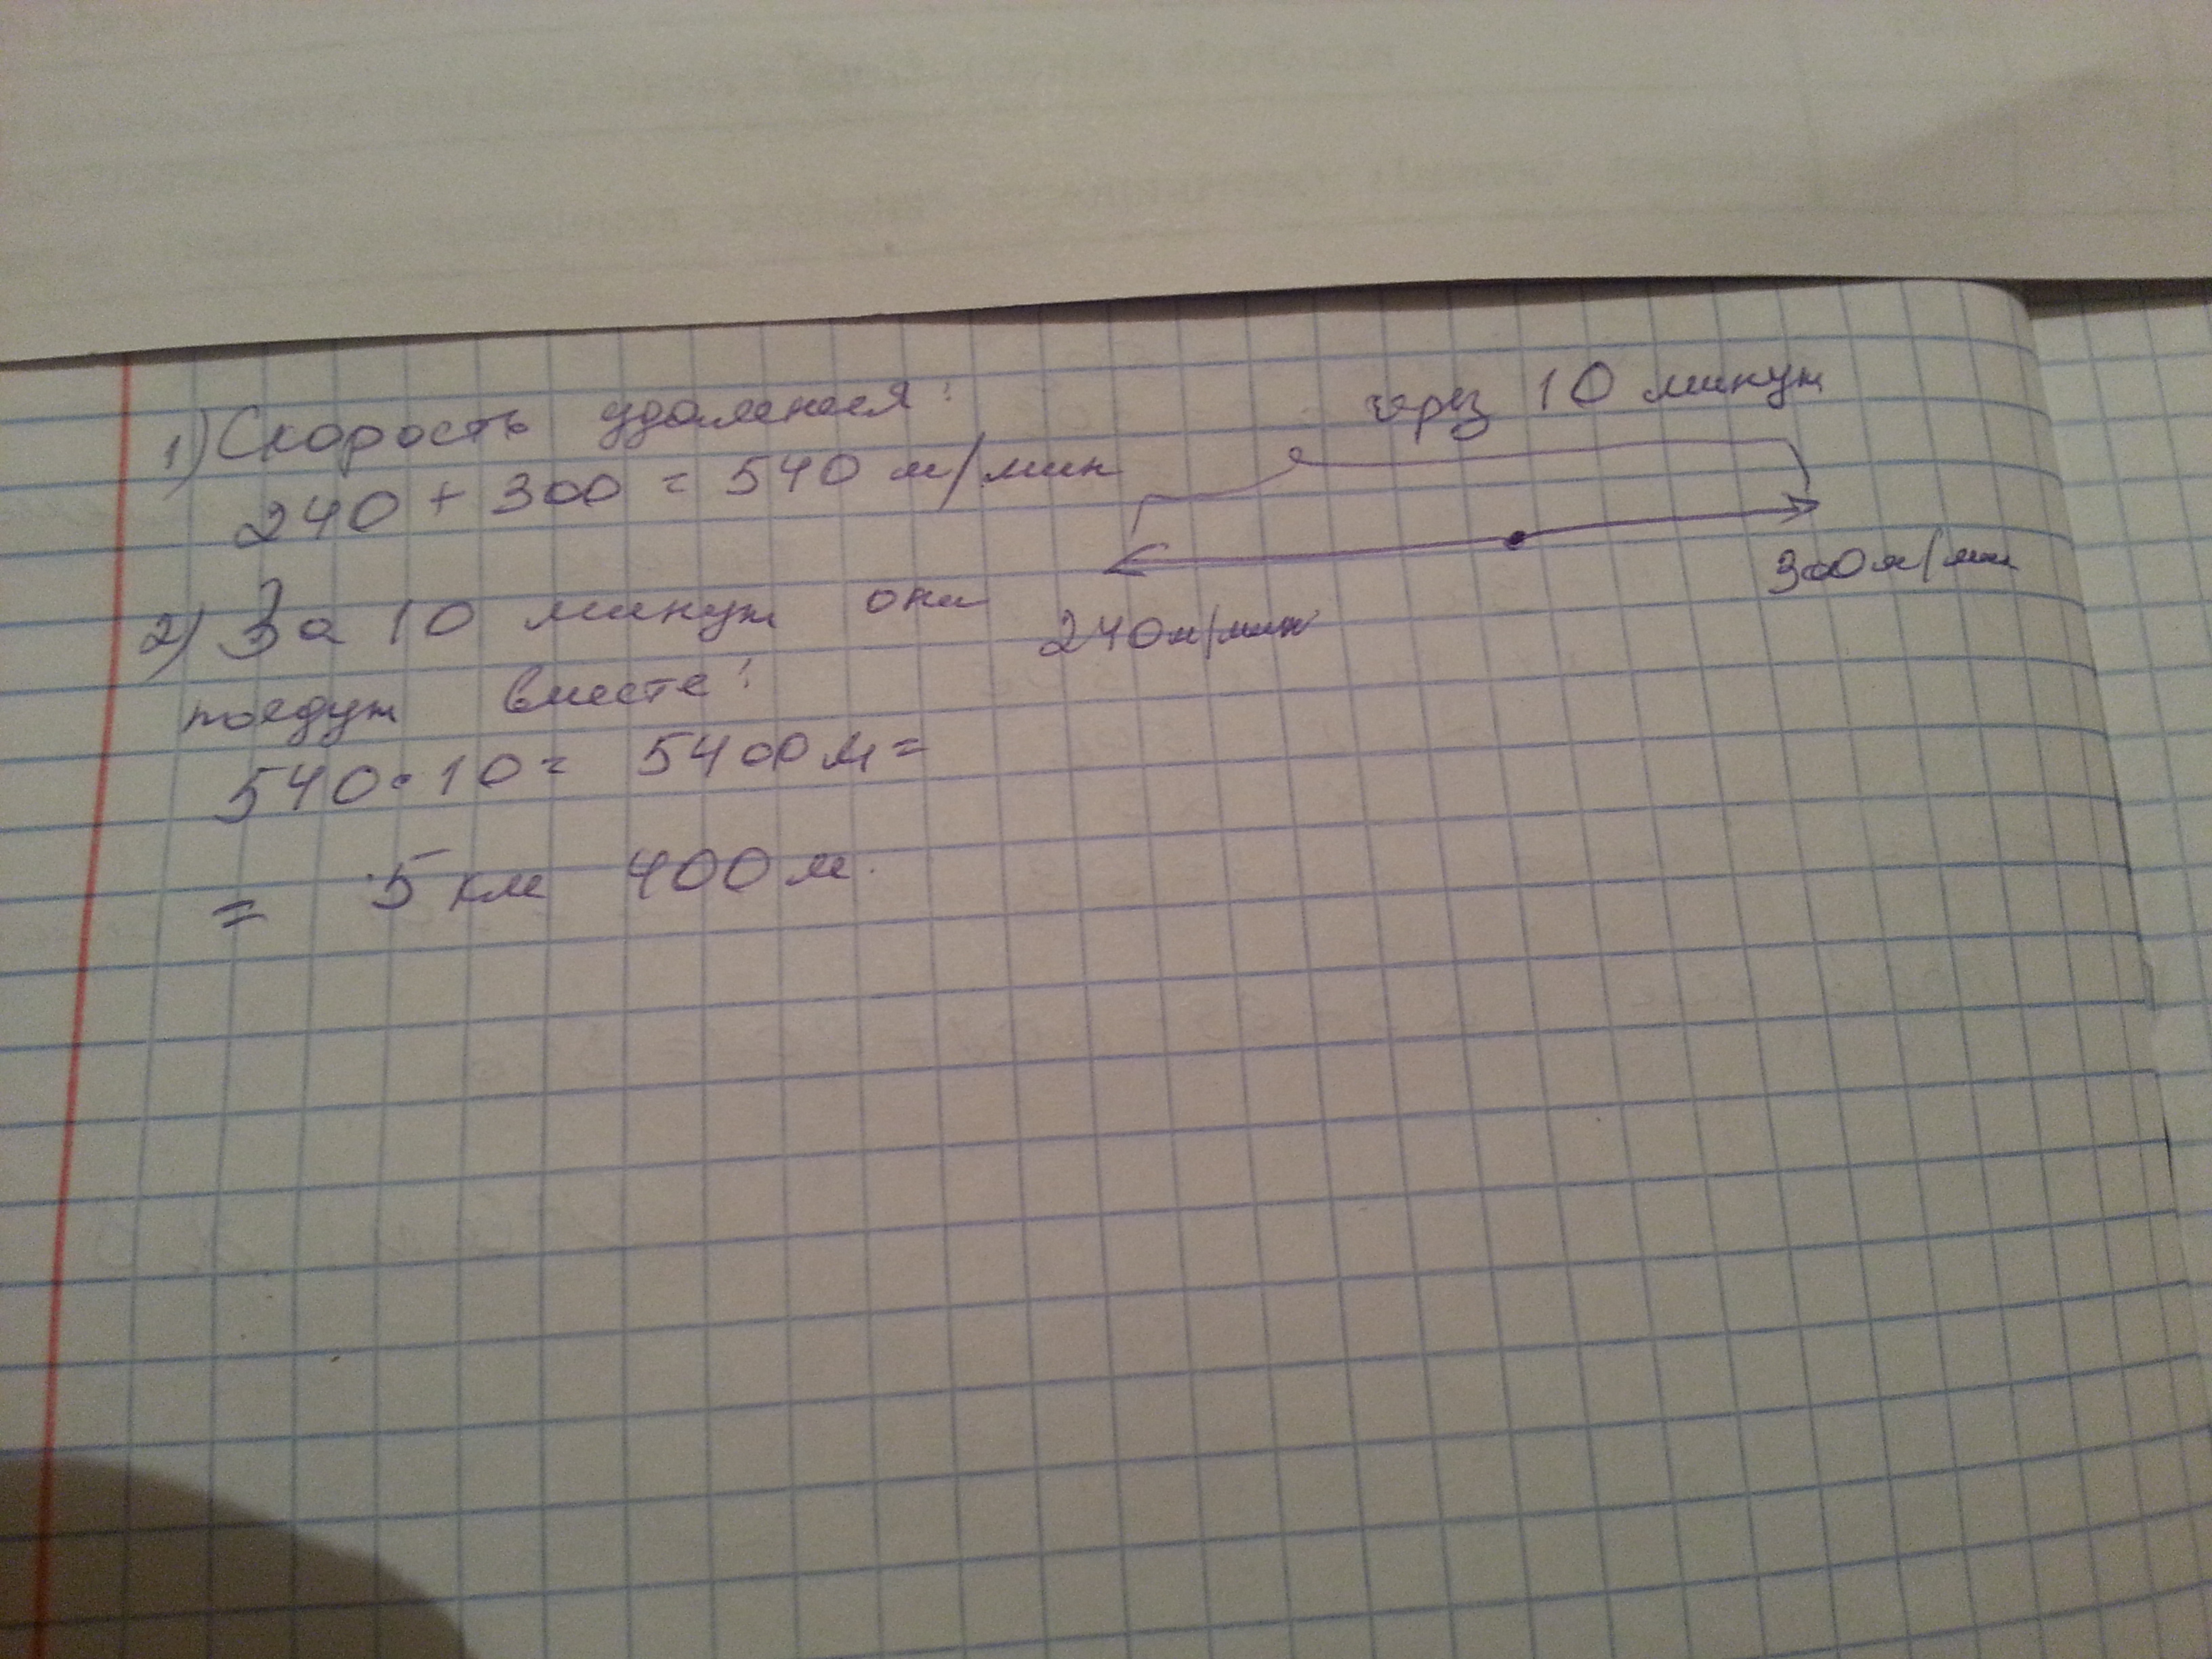 1) Скорость удаления:
240 + 300 = 540 м/мин
2) За 10 минут они
поедут вместе:
540 · 10 = 5400 м =
= 5 км 400 м.
через 10 минут
300 м/мин
240 м/мин